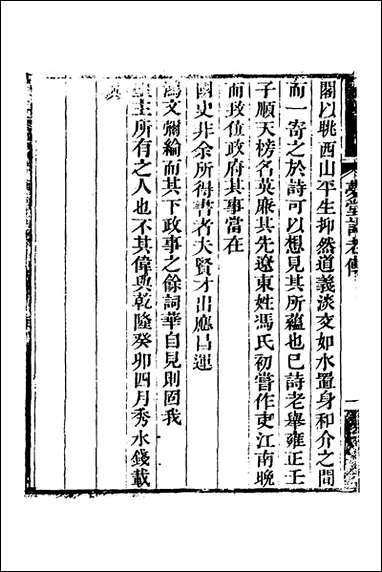 夢堂詩老傳
一
閣以眺西山平生抑然道義淡交如水置身和介之間
而一寄之於詩可以想見其所蘊也已詩老舉雍正壬
子順天榜名英廉其先遼東姓馮氏初嘗作吏江南晚
而政位政府其事當在
國史非余所得書者夫賢才出應昌運
鴻文彌綸而其下政事之餘詞華自見則固我
聖主所有之人也不其偉與乾隆癸卯四月秀水錢載
撰